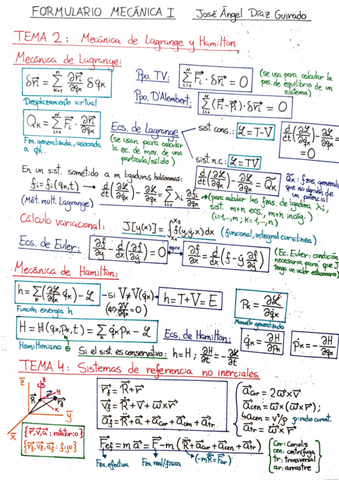 FORMULARIO MECÁNICA I José Ángel Díaz Guirado
TEMA 2: Mecánica de Lagrange y Hamilton
Mecánica de Lagrange:
δr⃗ᵢ = Σ ∂r⃗ᵢ/∂qₖ δqₖ
Desplazamiento virtual
Ppo. TV: Σ F⃗ᵢ · δr⃗ᵢ = 0 (se usa para calcular la pos. de equilibrio de un sistema)
Ppo. D'Alembert: Σ (F⃗ᵢ - ṗ⃗ᵢ) · δr⃗ᵢ = 0
Qₖ = Σ F⃗ᵢ ∂r⃗ᵢ/∂qₖ
Fza. generalizada, asociada a qₖ.
Ecs. de Lagrange
(se usan para calcular la ec. de mov. de una partícula/sólido)
sist. cons.: ℒ = T-V d/dt (∂ℒ/∂q̇ₖ) - ∂ℒ/∂qₖ = 0
sist. n.c.: ℒ = TV d/dt (∂ℒ/∂q̇ₖ) - ∂ℒ/∂qₖ = Q̃ₖ
que no deriva de un potencial
En un sist. sometido a m ligaduras holónomas:
fᵢ = fᵢ(qₖ, t) → d/dt (∂ℒ/∂q̇ₖ) - ∂ℒ/∂qₖ = Σ λᵢ ∂fᵢ/∂qₖ (para calcular las fzas. de ligadura, λᵢ, m+n ecs., m+n incóg.
(Mét. mult. Lagrange)
Cálculo variacional: J[y(x)] = ∫ f(y,ẏ,x) dx (funcional, integral curvilínea)
Ecs. de Euler: ∂f/∂y - d/dx (∂f/∂ẏ) = 0 ∂f/∂x = d/dx (f - ẏ ∂f/∂ẏ) (Ec. Euler: condición necesaria para que J tenga un valor estacionario)
Mecánica de Hamilton:
h = Σ (∂ℒ/∂q̇ₖ q̇ₖ) - ℒ si V≠V(q̇ₖ) h = T+V = E pₖ = ∂ℒ/∂q̇ₖ
Función energía h Momento generalizado
H = H(qₖ,pₖ,t) = Σ q̇ₖpₖ - ℒ Ecs. de Hamilton: q̇ₖ = ∂H/∂pₖ ṗₖ = -∂H/∂qₖ
Hamiltoniano Si el sist. es conservativo: h = H; ∂H/∂t = -∂ℒ/∂t
TEMA 4: Sistemas de referencia no inerciales
v⃗ + ω⃗×r⃗
a⃗cor = 2ω⃗×v⃗
a⃗cen = ω⃗×(ω⃗×r⃗)
F⃗ef = m a⃗ = F⃗ - m(R̈⃗ + a⃗cor + a⃗cen + a⃗tr)
Fza. efectiva Fza. real/física
Cor: Coriolis
cen: centrífuga
tr: transversal
ar: arrastre